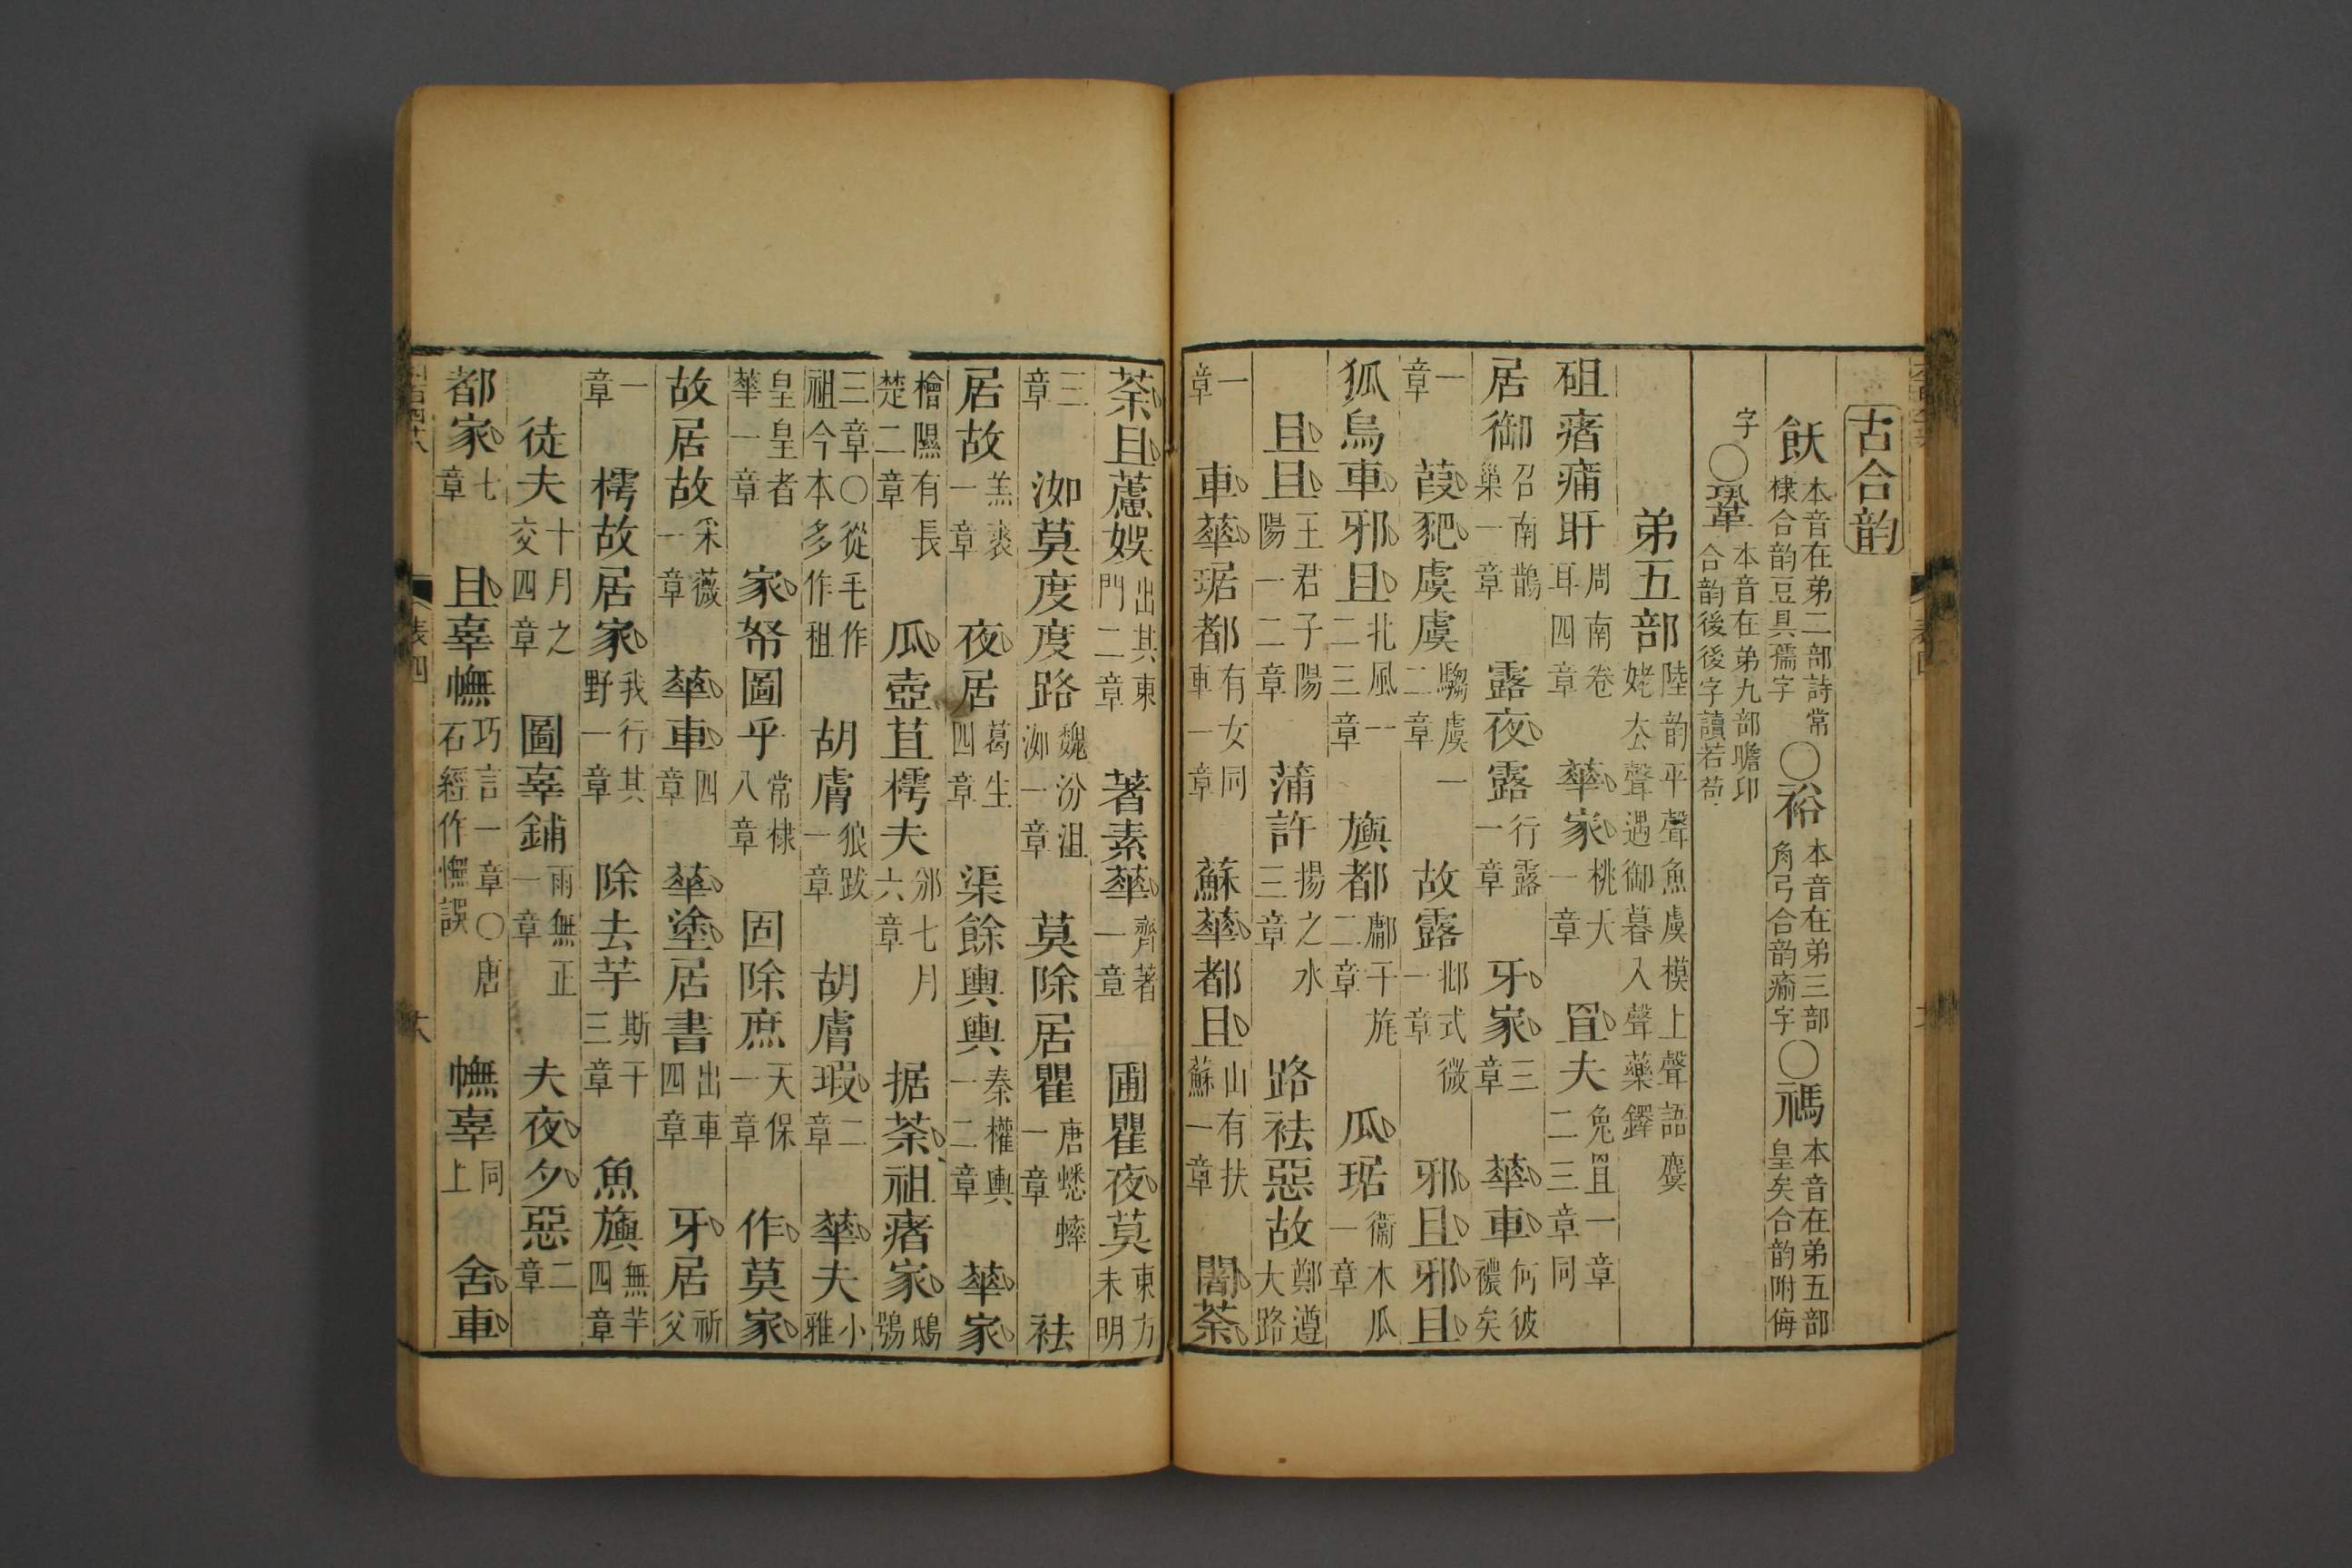 古合韵
飫本音在弟二部詩常棣合韵豆具孺字〇裕本音在弟三部角弓合韵瘉字〇禡本音在弟五部皇矣合韵附侮
字〇鞏本音在弟九部瞻卬合韵後後字讀若苟
弟五部陸韵平聲魚虞模上聲語麌姥厺聲遇御暮入聲藥鐸
砠瘏痡盱周南卷耳四章 華家桃夭一章 罝夫兔罝一章二三章同
居御召南鵲巢一章 露夜露行露一章 牙家三章 華車何彼襛矣
一章 葭豝虞虞騶虞一二章 故露邶式微一章 邪且邪且
狐烏車邪且北風一二三章 旟都鄘干旄二章 瓜琚衞木瓜一章
且且王君子陽陽一二章 蒲許揚之水三章 路袪惡故鄭遵大路
一章 車華琚都有女同車一章 蘇華都且山有扶蘇一章 闍荼
荼且藘娛出其東門二章 著素華齊著一章 圃瞿夜莫東方未明
三章 洳莫度度路魏汾沮洳一章 莫除居瞿唐蟋蟀一章 袪
居故羔裘一章 夜居葛生四章 渠餘輿輿秦權輿一二章 華家
檜隰有長楚二章 瓜壺苴樗夫邠七月六章 据荼祖瘏家鴟鴞
三章〇從毛作祖今本多作租 胡膚狼跋一章 胡膚瑕二章 華夫小雅
皇皇者華一章 家帑圖乎常棣八章 固除庶天保一章 作莫家
故居故采薇一章 華車四章 華塗居書出車四章 牙居祈父
一章 樗故居家我行其野一章 除去芋斯干三章 魚旟無羊四章
徒夫十月之交四章 圖辜鋪雨無正一章 夫夜夕惡二章
都家七章 且辜幠巧言一章〇唐石經作憮誤 幠辜同上 舍車
表四